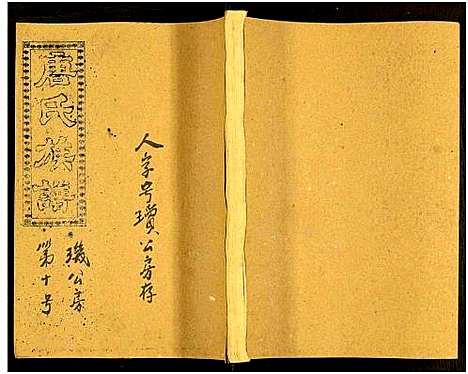 唐氏族譜
人字号璜公房存
璣公房
第十号